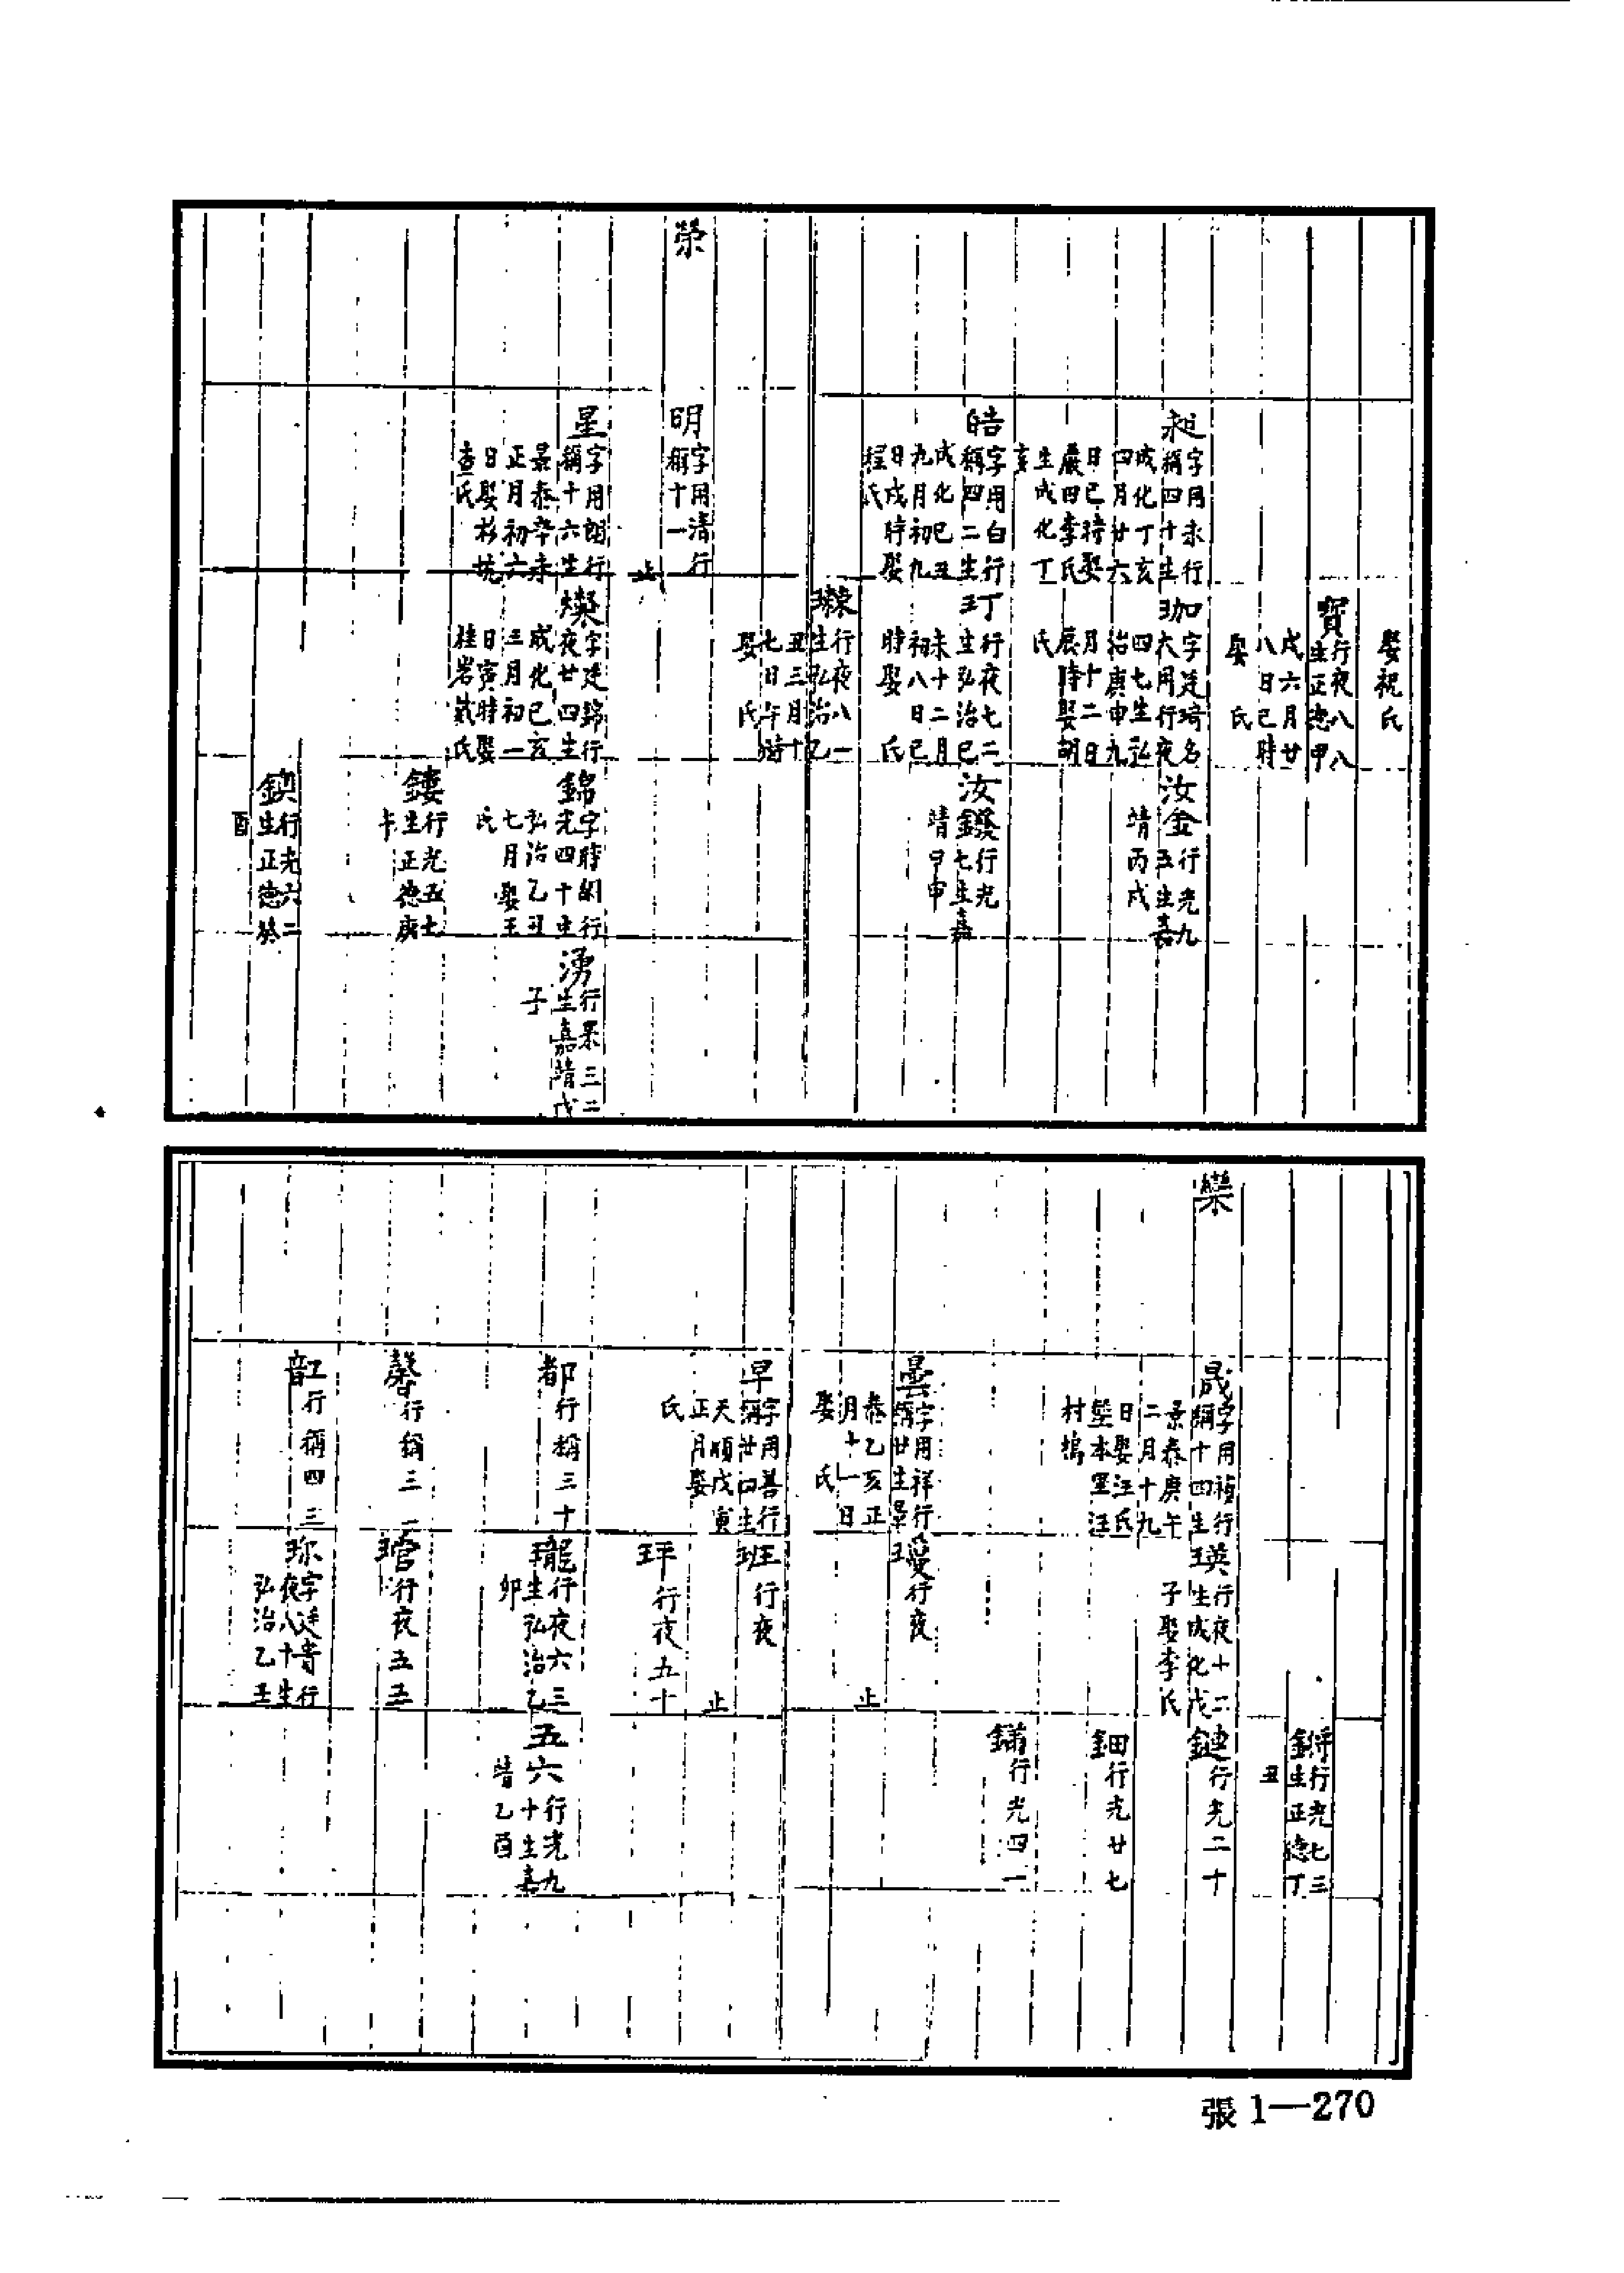 娶祝氏
寳
行夜八八
生正德甲
戌六月廿
八日巳時
娶 氏
昶
字用永行
稱四十生
成化丁亥
四月廿六
日巳時娶
嚴田李氏
生成化丁
亥
珈
字廷琦名
大用行夜
四七生弘
治庚申九
月十二日
辰時娶胡
氏
汝金
行光九
五生嘉
靖丙戌
皓
字用白行
稱四二生
成化己丑
九月初九
日戌時娶
程氏
玎
行夜七二
生弘治己
未十二月
初八日巳
時娶 氏
汝鏺
行光
七生嘉
靖甲申
㻋
行夜八一
生弘治乙
丑三月十
七日午時
娶 氏
榮
明
字用清行
稱十一
止
星
字用朗行
稱十六生
景泰辛未
正月初六
日娶杉坑
查氏
燦
字廷錦行
夜廿四生
成化己亥
三月初一
日寅時娶
桂岩戴氏
錦
字時絅行
光四十生
弘治乙丑
七月娶王
氏
湧
行杲三二
生嘉靖戊
子
鏤
行光五七
生正德庚
午
鉷
行光六二
生正德癸
酉
鏘
行光七三
生正德丁
丑
欒
晟
字用禎行
稱十四生
景泰庚午
二月十九
日娶汪氏
塟本里汪
村塢
瑛
行夜十二
生成化戊
子娶李氏
鏈
行光二十
鈿
行光廿七
鏋
行光四一
曇
字用祥行
稱廿生景
泰乙亥正
月十一日
娶 氏
璦
行夜
止
早
字用善行
稱廿四生
天順戊寅
正月娶
氏
班
行夜
止
玶
行夜五十
都
行稱三十
瓏
行夜六三
生弘治乙
卯
五六
行光九
十生嘉
靖乙酉
馨
行稱三二
琯
行夜五五
䪦
行稱四三
珎
字廷貴行
夜八十生
弘治乙丑
張 1—270